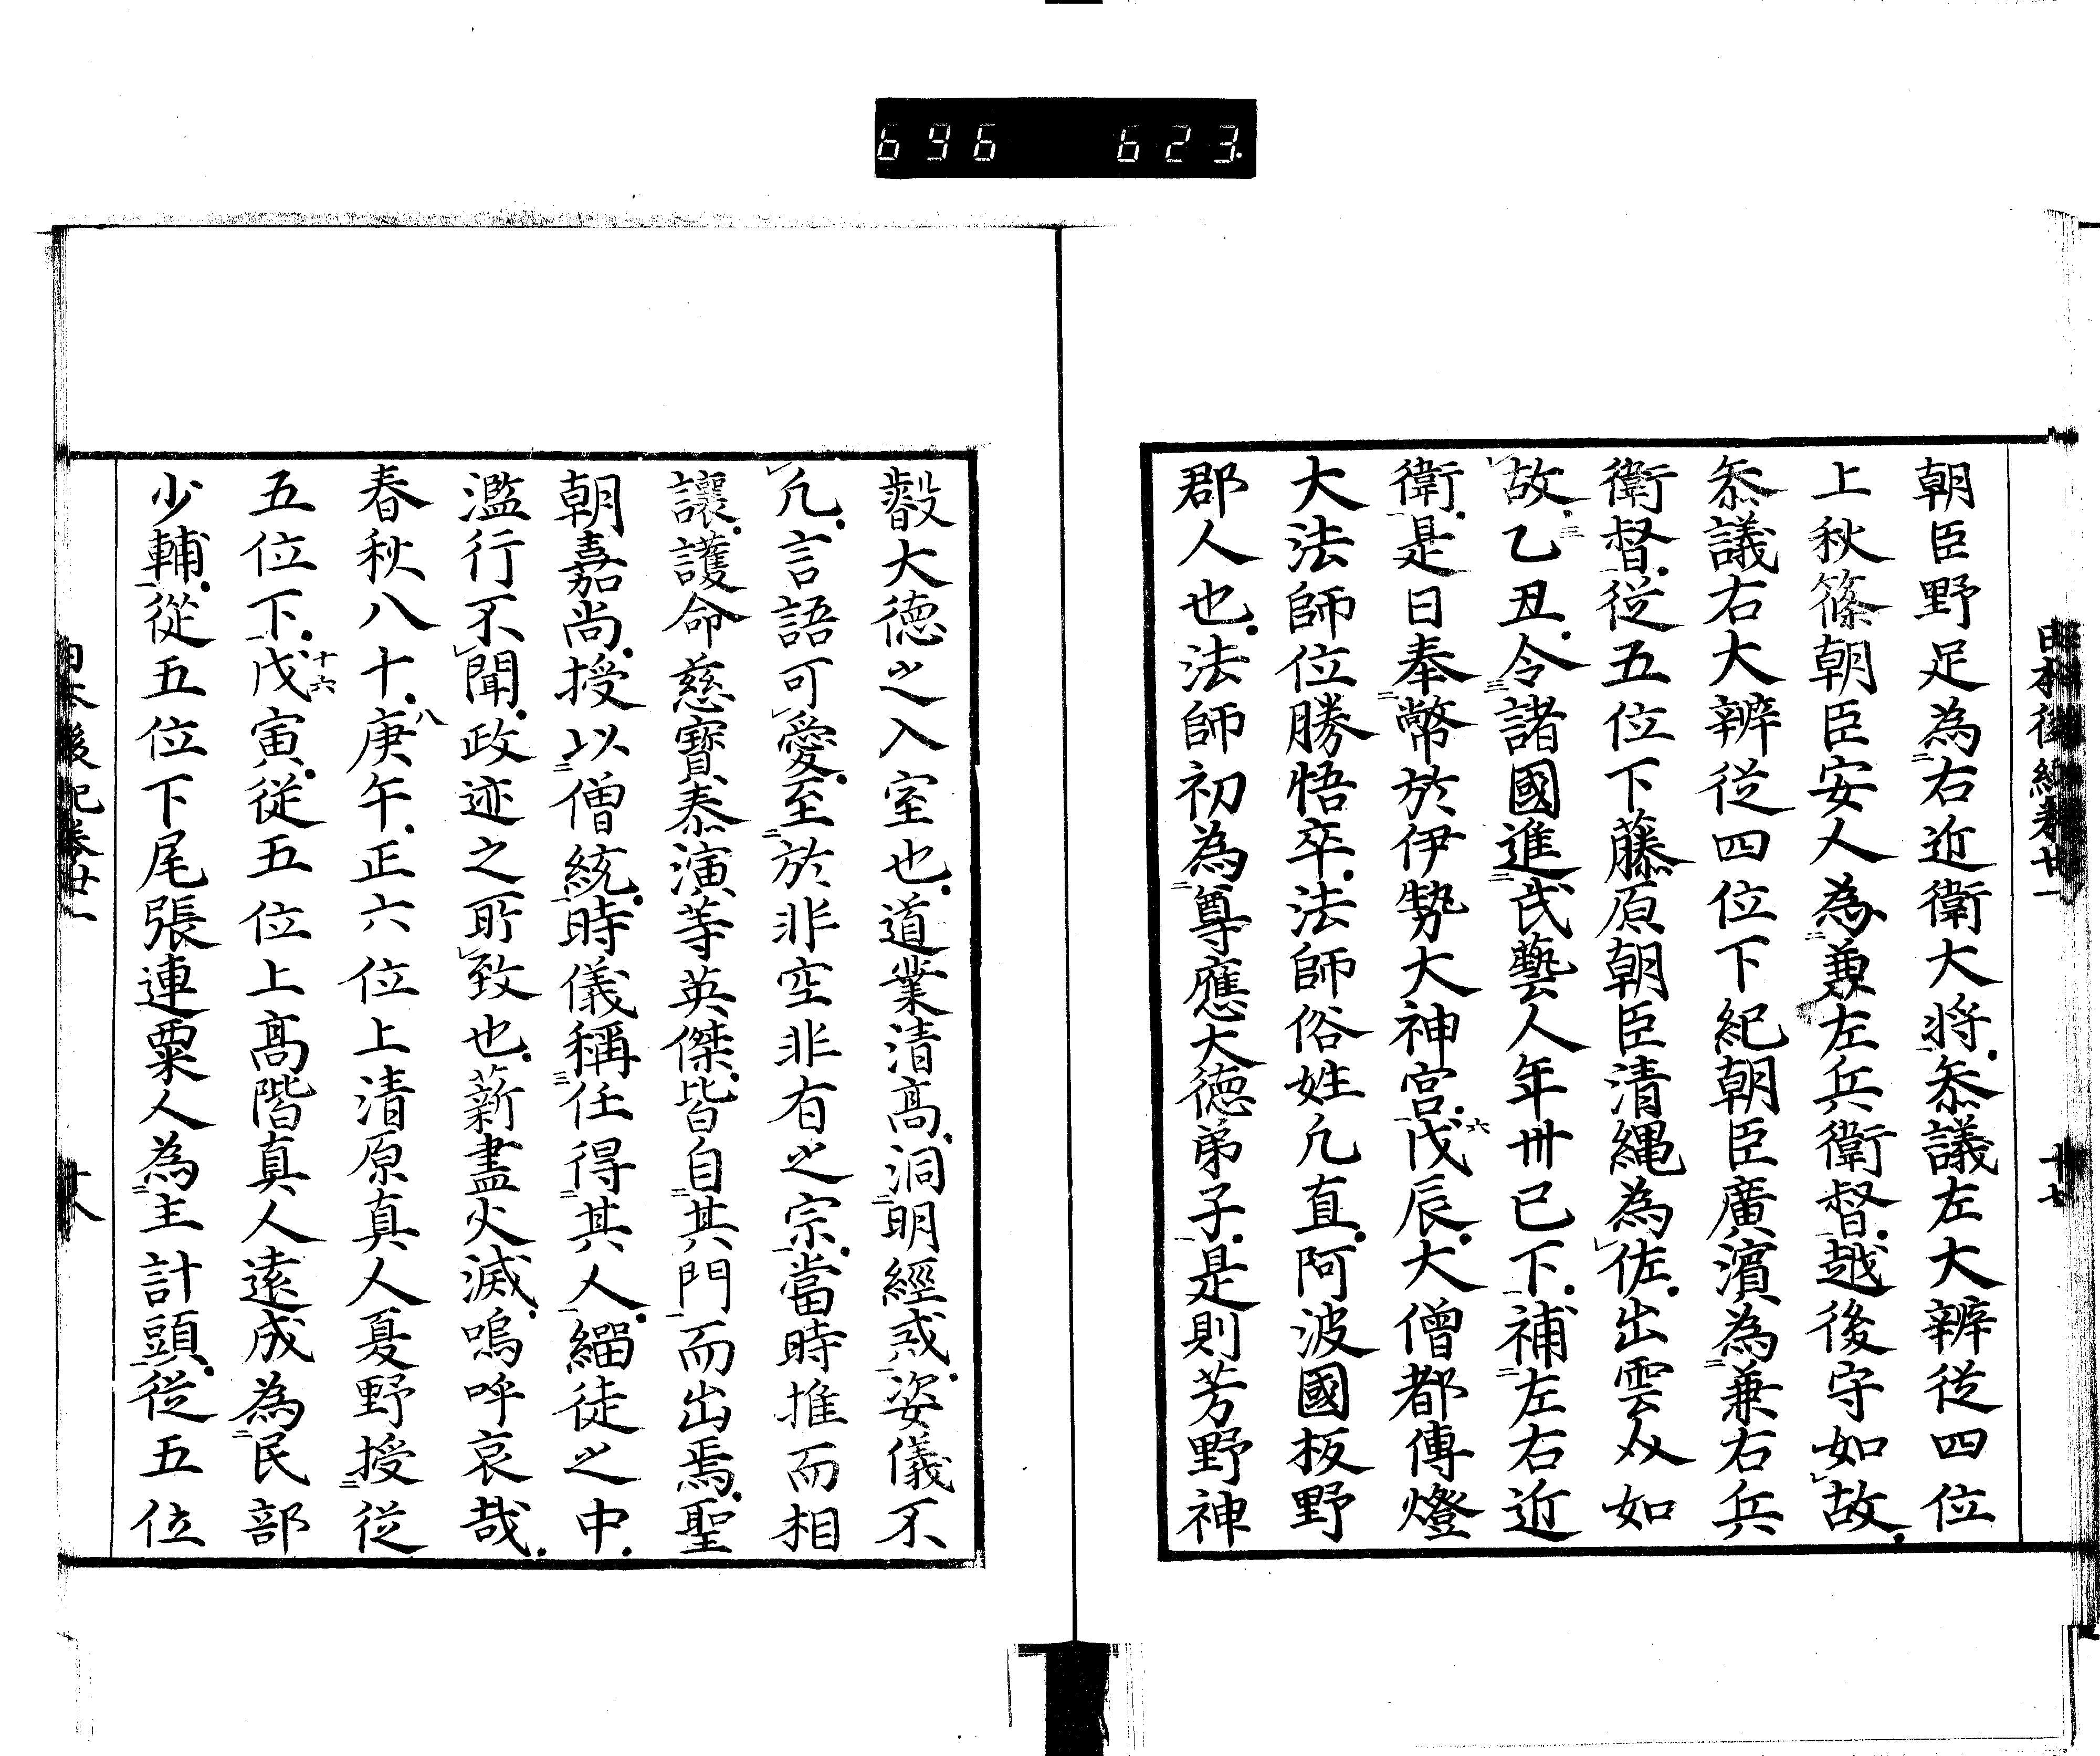 696 623
日本後紀卷廿一 十七
朝臣野足為右近衛大將叅議左大辨從四位
上秋篠朝臣安人為兼左兵衛督越後守如故
叅議右大辨從四位下紀朝臣廣濱為兼右兵
衛督從五位下藤原朝臣清縄為佐出雲介如
故乙丑令諸國進武藝人年卅已下補左右近
衛是日奉幣於伊勢大神宮戊六辰大僧都傳燈
大法師位勝悟卒法師俗姓凡直阿波國板野
郡人也法師初為尊應大德弟子是則芳野神
叡大德之入室也道業清高洞明經戒姿儀不
凡言語可愛至於非空非有之宗當時推而相
讓護命慈寶泰演等英傑皆自其門而出焉聖
朝嘉尚授以僧統時儀稱任得其人緇徒之中
濫行不聞政迹之所致也薪盡火滅嗚呼哀哉
春秋八十庚八午正六位上清原真人夏野授從
五位下戊十六寅從五位上高階真人遠成為民部
少輔從五位下尾張連粟人為主計頭從五位
日本後紀卷廿一 十八